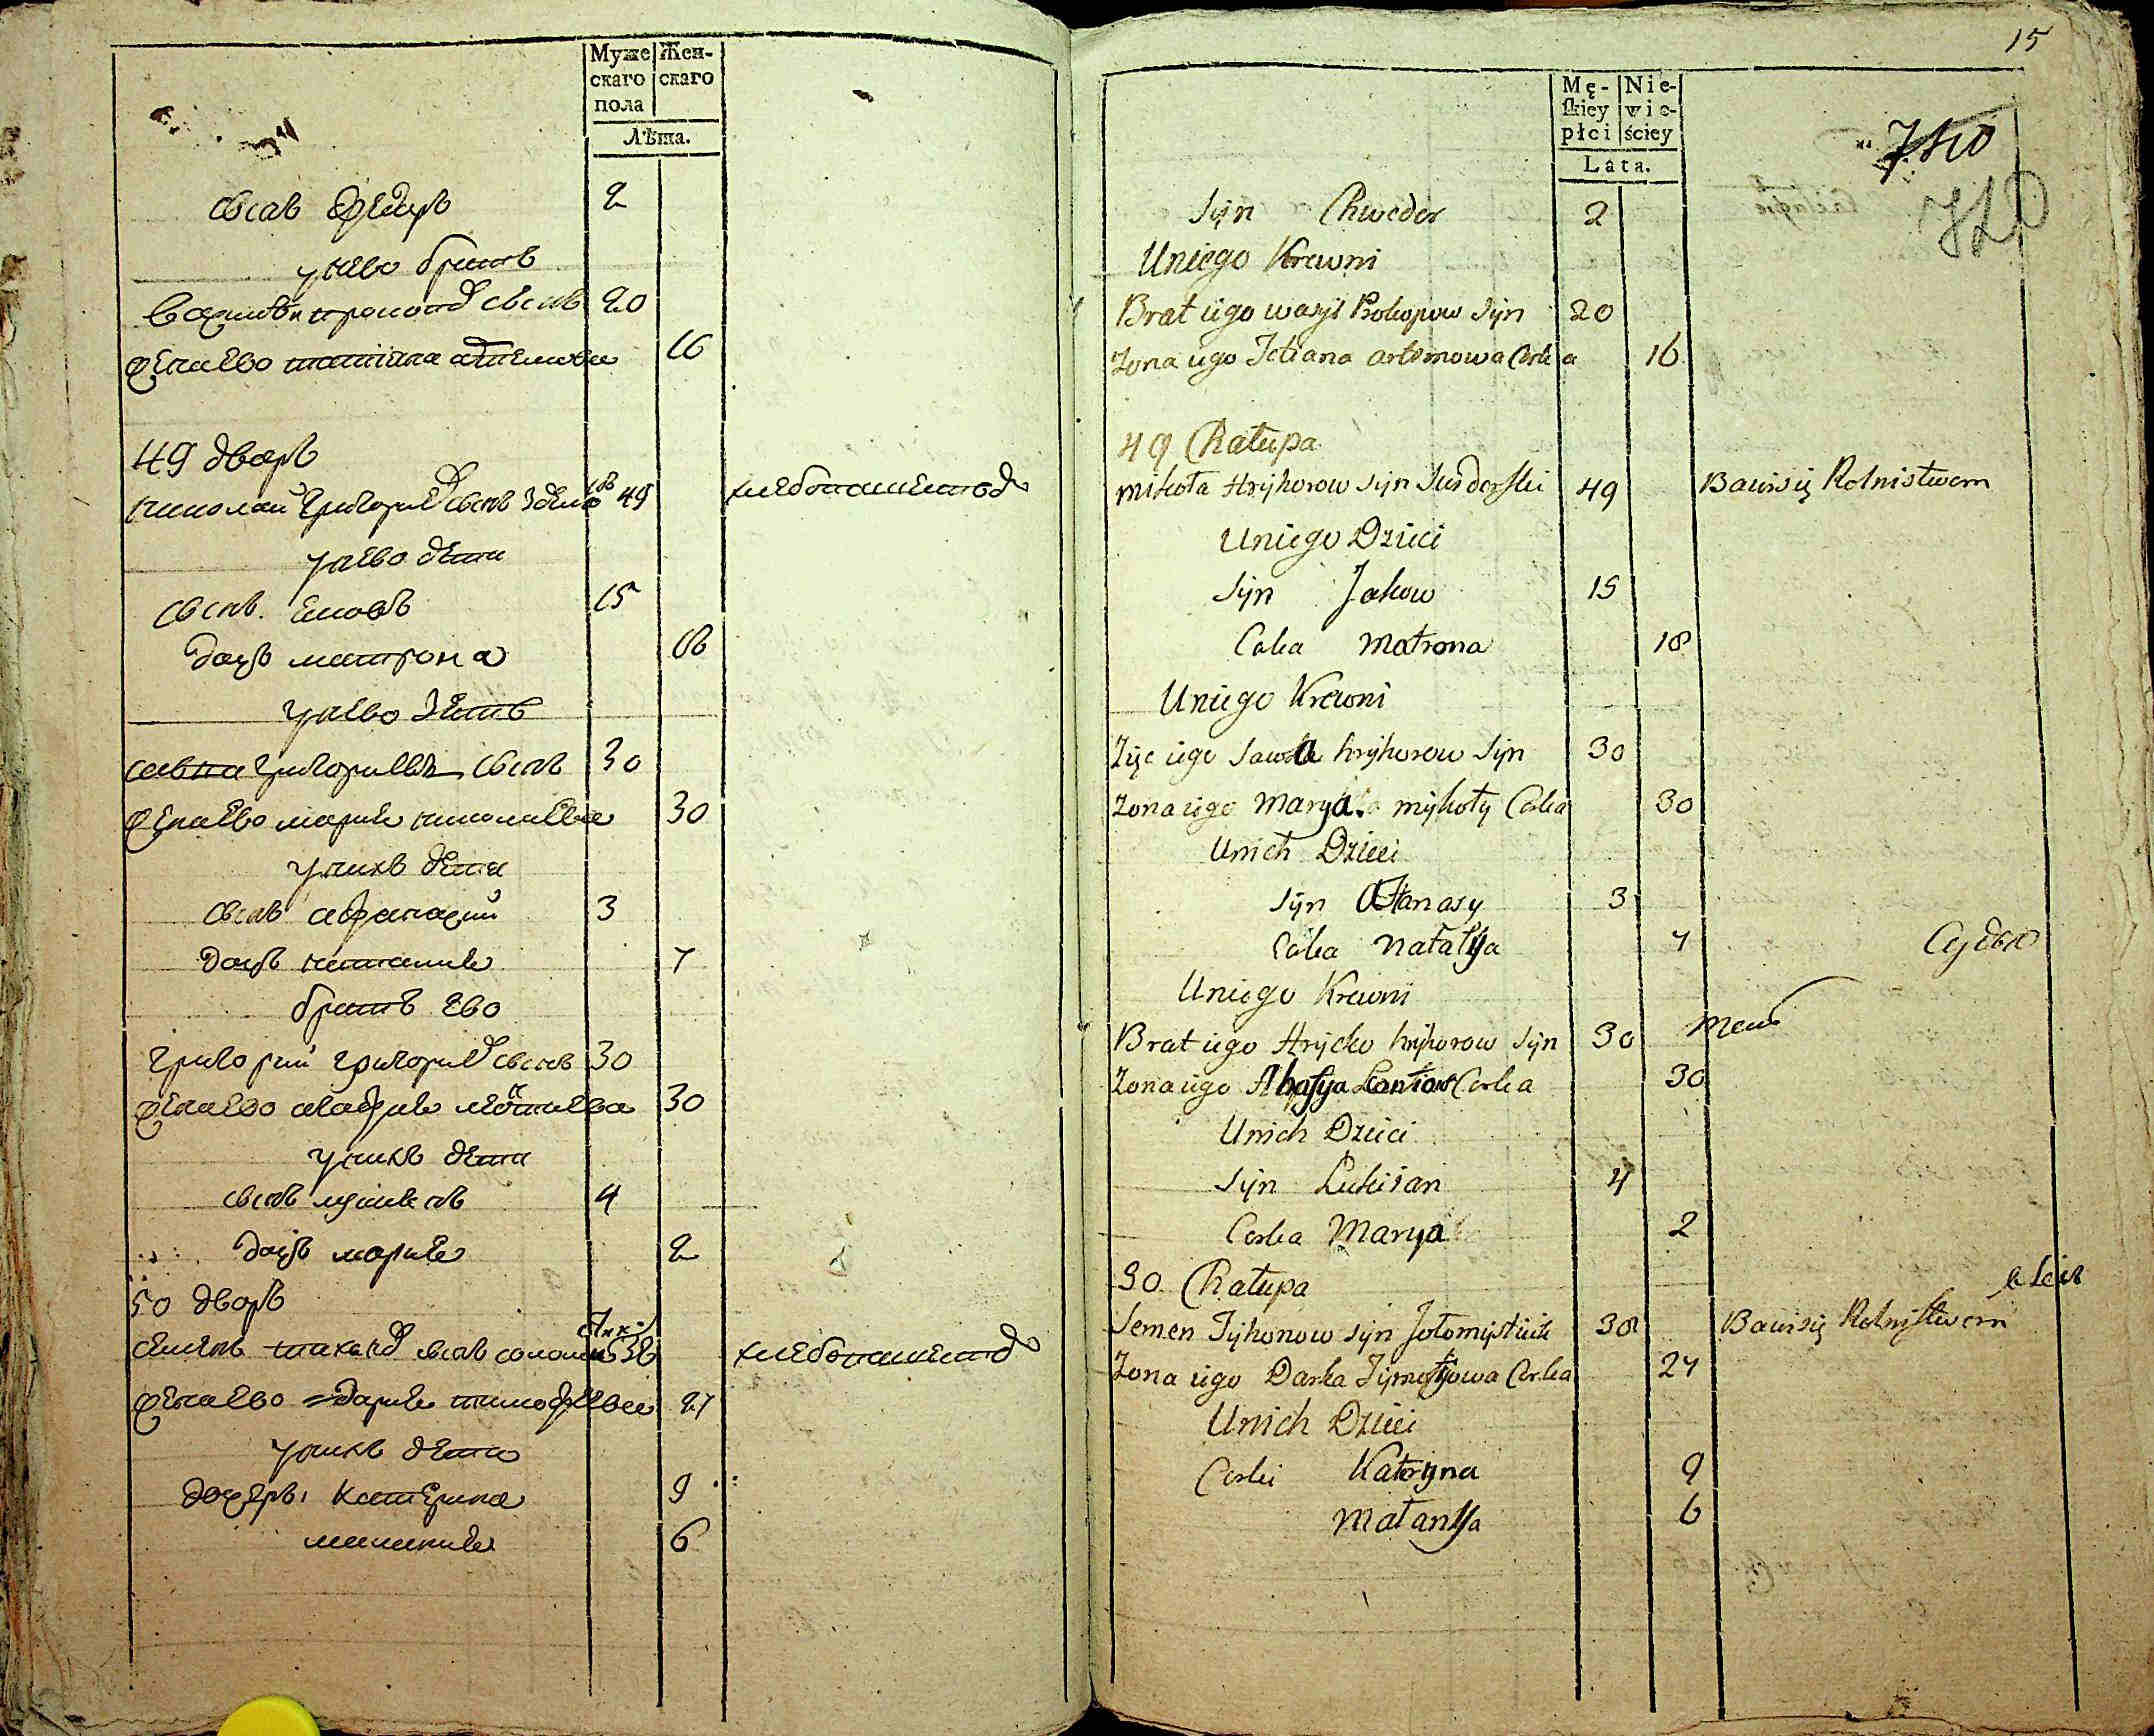 Муже
скаго
пола
Жен-
скаго
Лѣта.
сынъ Федоръ 2
у нево братъ
василей прокопов сынъ 20
жена ево татиана артемова 16
49 дворъ
николай григорьев сынъ 49 хлебопашеством
у нево дети
сынъ яковъ 15
дочь матрона 18
у нево зеть
савка григорьевъ сынъ 30
жена ево мария николаева 30
у нихъ дети
сынъ афанасий 3
дочь наталия 7
братъ ево
григорий григорьев сынъ 30
жена ево агафия леонтиева 30
у нихъ дети
сынъ лукиянъ 4
дочь мария 2
50 дворъ
семенъ тихонов сынъ 38 хлебопашеством
жена ево дария тимофеева 27
у нихъ дети
дочери катерина 9
малания 6
15
Mę-
skiey
płci
Nie-
wie-
ściey
Lata.
740
Syn Chwedor 2
Uniego Krewni
Brat iego wasyl Prokopow Syn 20
Zona iego Tetiana artemowa Corka 16
49 Chałupa
mikoła Hryhorow Syn 49 Bawi się Rolnistwem
Uniego Dzieci
Syn Jakow 15
Corka Matrona 18
Uniego Krewni
Zięc iego Sawka hryhorow Syn 30
Zona iego Marya mykoły Corka 30
Unich Dzieci
Syn Afanasy 3
Corka Natalya 7
Uniego Krewni
Brat iego Hrycko hryhorow Syn 30
Zona iego Ahafya Leontiow Corka 30
Unich Dzieci
Syn Lukian 4
Corka Marya 2
50 Chałupa
Semen Tyhonow Syn 38 Bawi się Rolnistwem
Zona iego Darka Tymofijowa Corka 27
Unich Dzieci
Corki Kateryna 9
Malanya 6